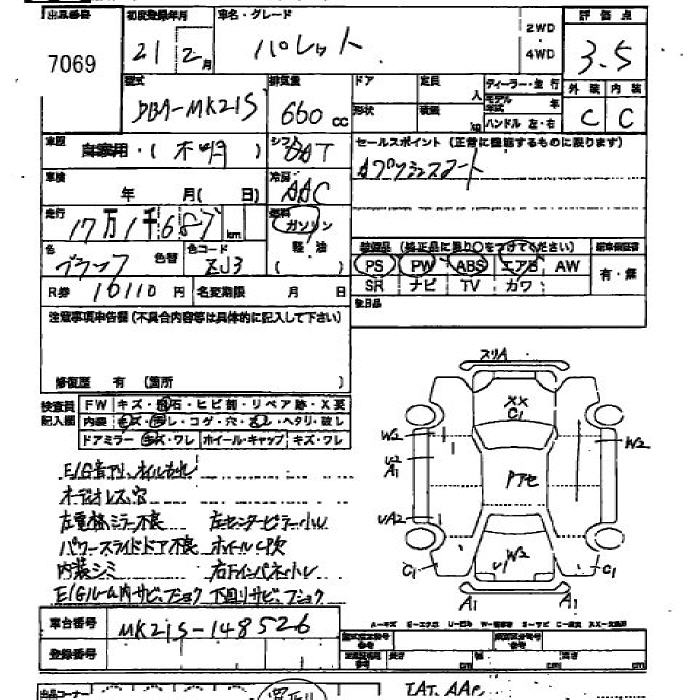 出品番号 初度登録年月 車名・グレード 評価点
7069 21年 2月 パレット 2WD 4WD 3.5
型式 排気量 ドア 定員 人 ディーラー・並行 外装 内装
DBA-MK21S 660cc 形状 積載 kg モデル年式 年 C C
ハンドル 左・右
車歴 自家用・(不明) シフト DAT セールスポイント(正常に機能するものに限ります)
車検 年 月(日) 冷房 AAC
走行 17万1千687km 燃料 ガソリン
色 ブラック 色替 色コード ZJ3 軽油 ( ) 装備品(純正品に限り○をつけてください)
PS PW ABS エアB AW 有・無
R券 10110円 名変期限 月 日 SR ナビ TV カワ
後日品
注意事項申告欄(不具合内容等は具体的に記入して下さい)
修復歴 有(箇所 )
検査員 FW キズ・飛石・ヒビ割・リペア跡・X要
記入欄 内装 キズ・汚レ・コゲ・穴・スレ・ヘタリ・破レ
ドアミラー キズ・ワレ ホイール・キャップ キズ・ワレ
スリA
XX
C1
W2 W2
U2
A1
Pアセ
UA2
W2
U1
C1 C1
A1 A1
E/G音アリ、オイルもれ
オーディオレス、穴
左電格ミラー不良 左センターピラー小ル
パワースライドドア不良 ホイールCP欠
内装シミ 右下インパネ小ル
E/Gルーム内サビ、フショク 下回りサビ、フショク
A―キズ E―エクボ U―凹み W―補修跡 S―サビ C―腐食 XX―交換済
車台番号 MK21S-148526
登録番号
長さ cm 幅 cm 高さ cm
出品コーナー
IAT, AAC